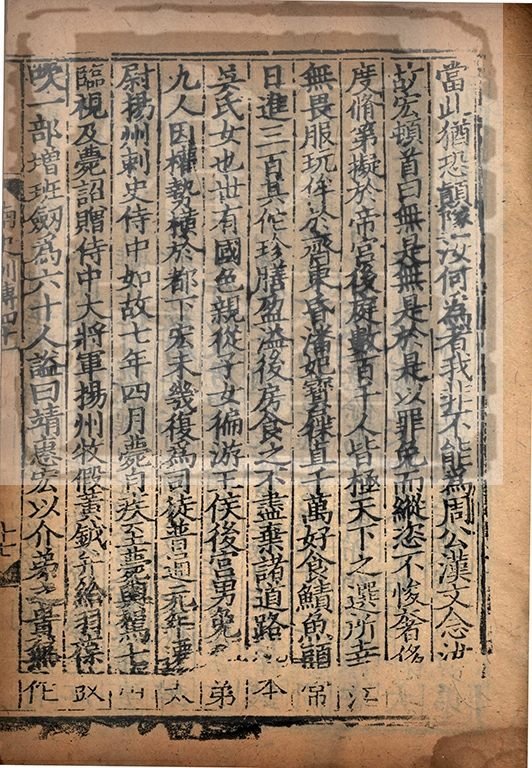 當此猶恐顛隊汝何為者我非不能為周公漢文念汝
故宏頓首曰無是無是於是以罪免而縱恣不悛奢侈
度脩第擬於帝宮後庭數百千人皆極天下之選所幸江
無畏服玩侔於齊東昏潘妃寶屧直千萬好食鯖魚頭常
日進三百其佗珍膳盈溢後房食之不盡棄諸道路江本
吳氏女也世有國色親從子女徧游王侯後宮男免弟
九人因權勢橫於都下宏未幾復為司徒普通元年遷太
尉揚州刺史侍中如故七年四月薨自疾至薨輿駕七出
臨視及薨詔贈侍中大將軍揚州牧假黃鉞并給羽葆鼓
吹一部增班劔為六十人謚曰靖惠宏以介弟之貴無佗
列傳四十
十七